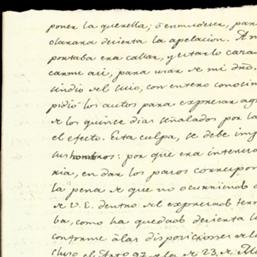 poner la querella; ò enmudecer, para
declarar decierta la apelacion. An
portaba era callar, y citarlo cara
carme asi, para usar de mi dño.
sindio el suio, con entero conocim
pidiò los autos para expresar ag
de los quince dias señalados por la
el efecto. Esta culpa, se debe imp
sus hombros: por que era intencio
ria, en dar los pasos correspon
la pena de que no ocurriendo
de V.E. dentro del expresado term
ba, como ha quedado decierta la
conforme à las disposiciones de la
el Auto 23